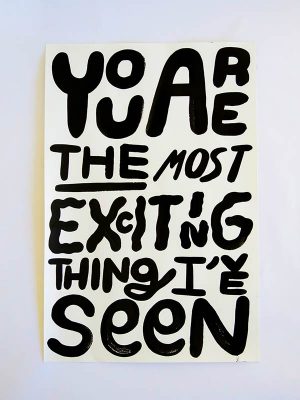 YOU ARE
THE MOST
EXCITING
THING I'VE
SEEN